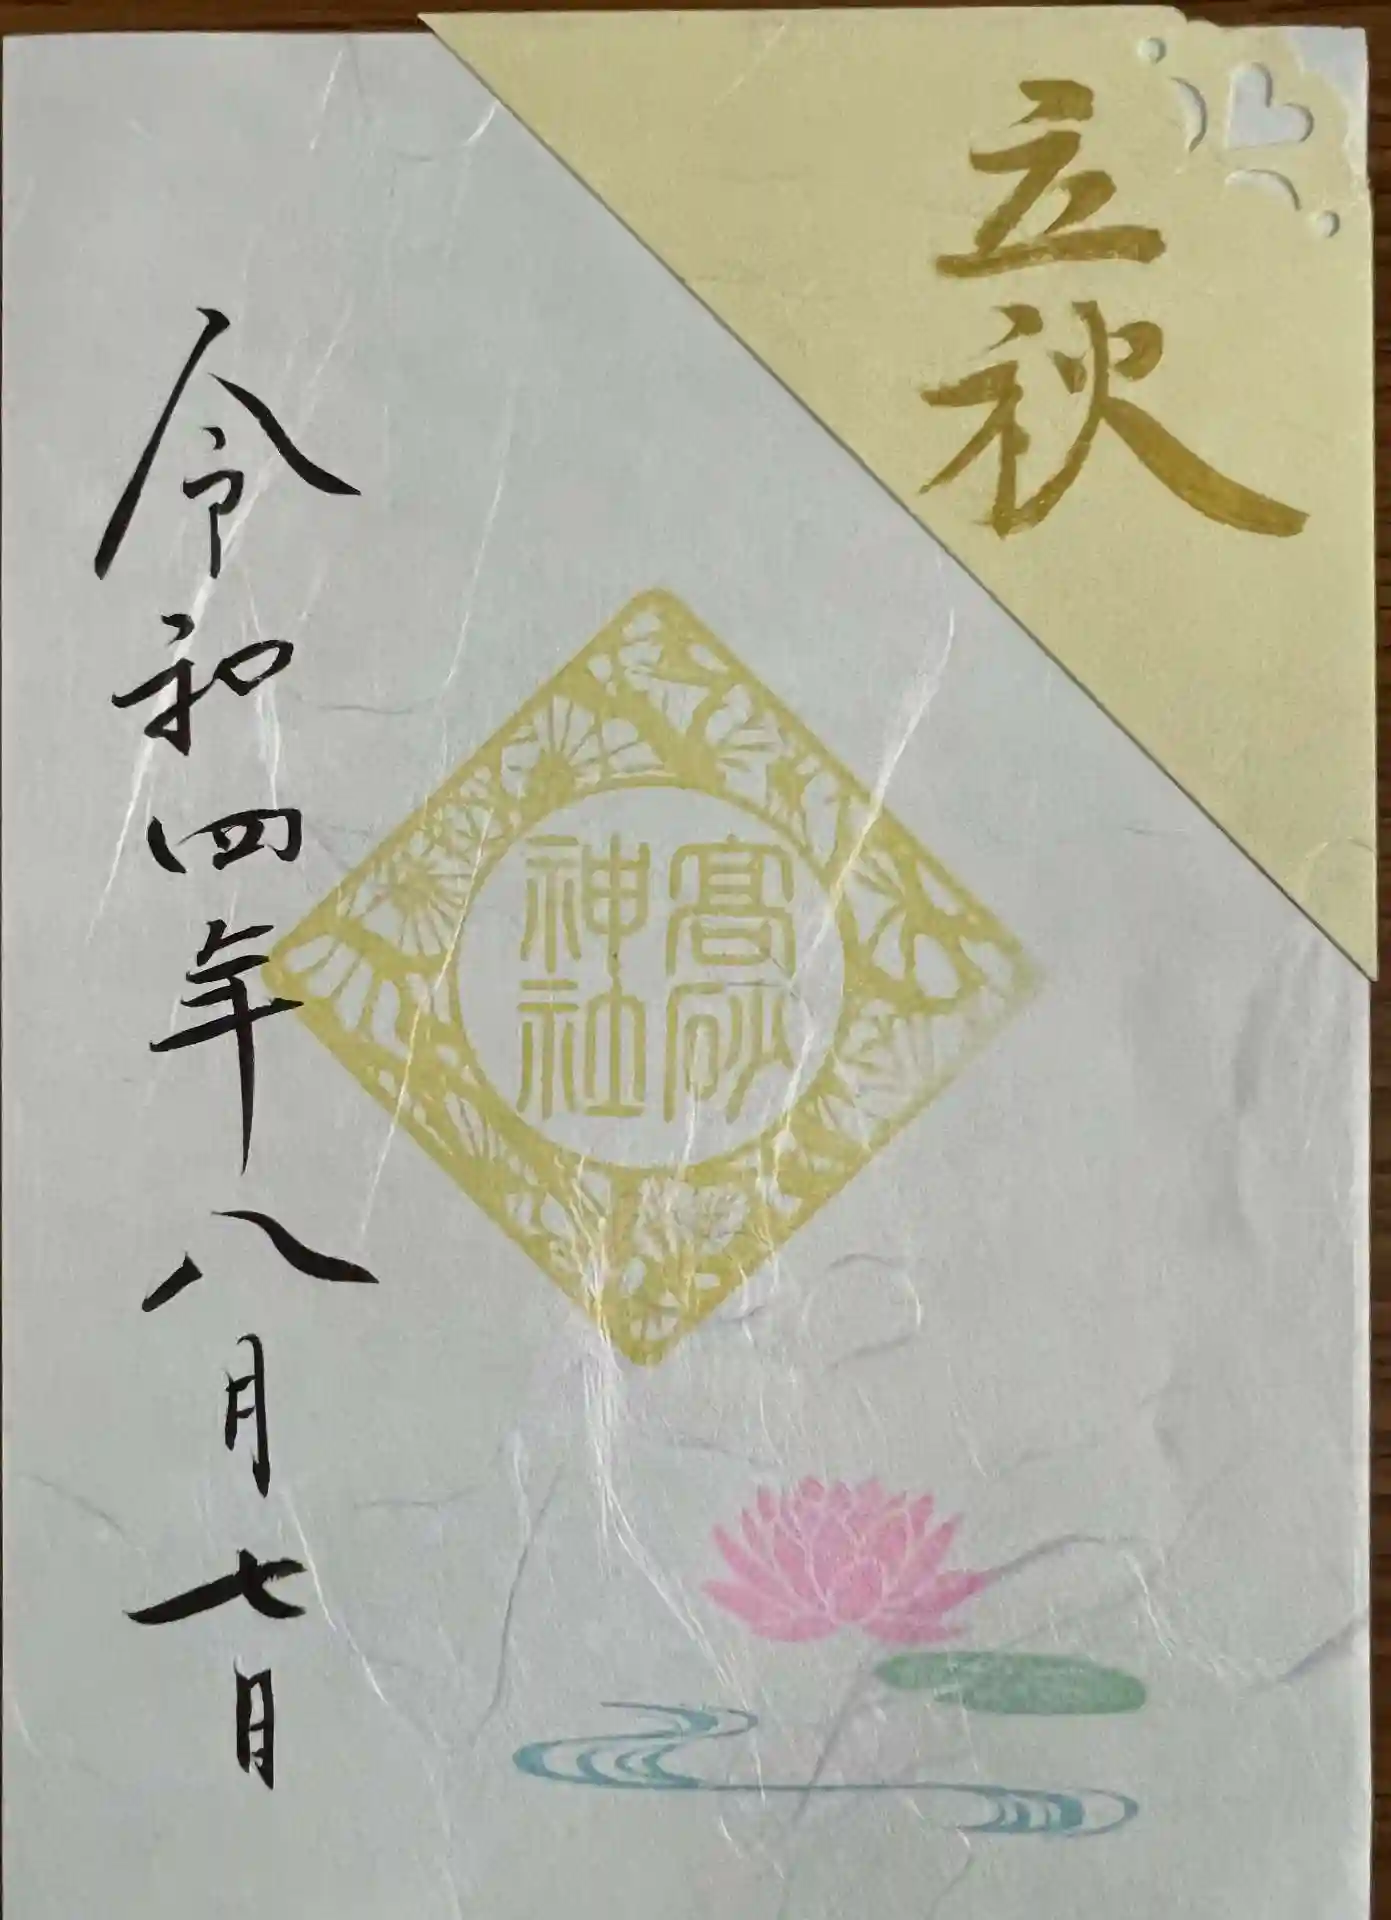 立秋
髙砂
神社
令和四年八月七日